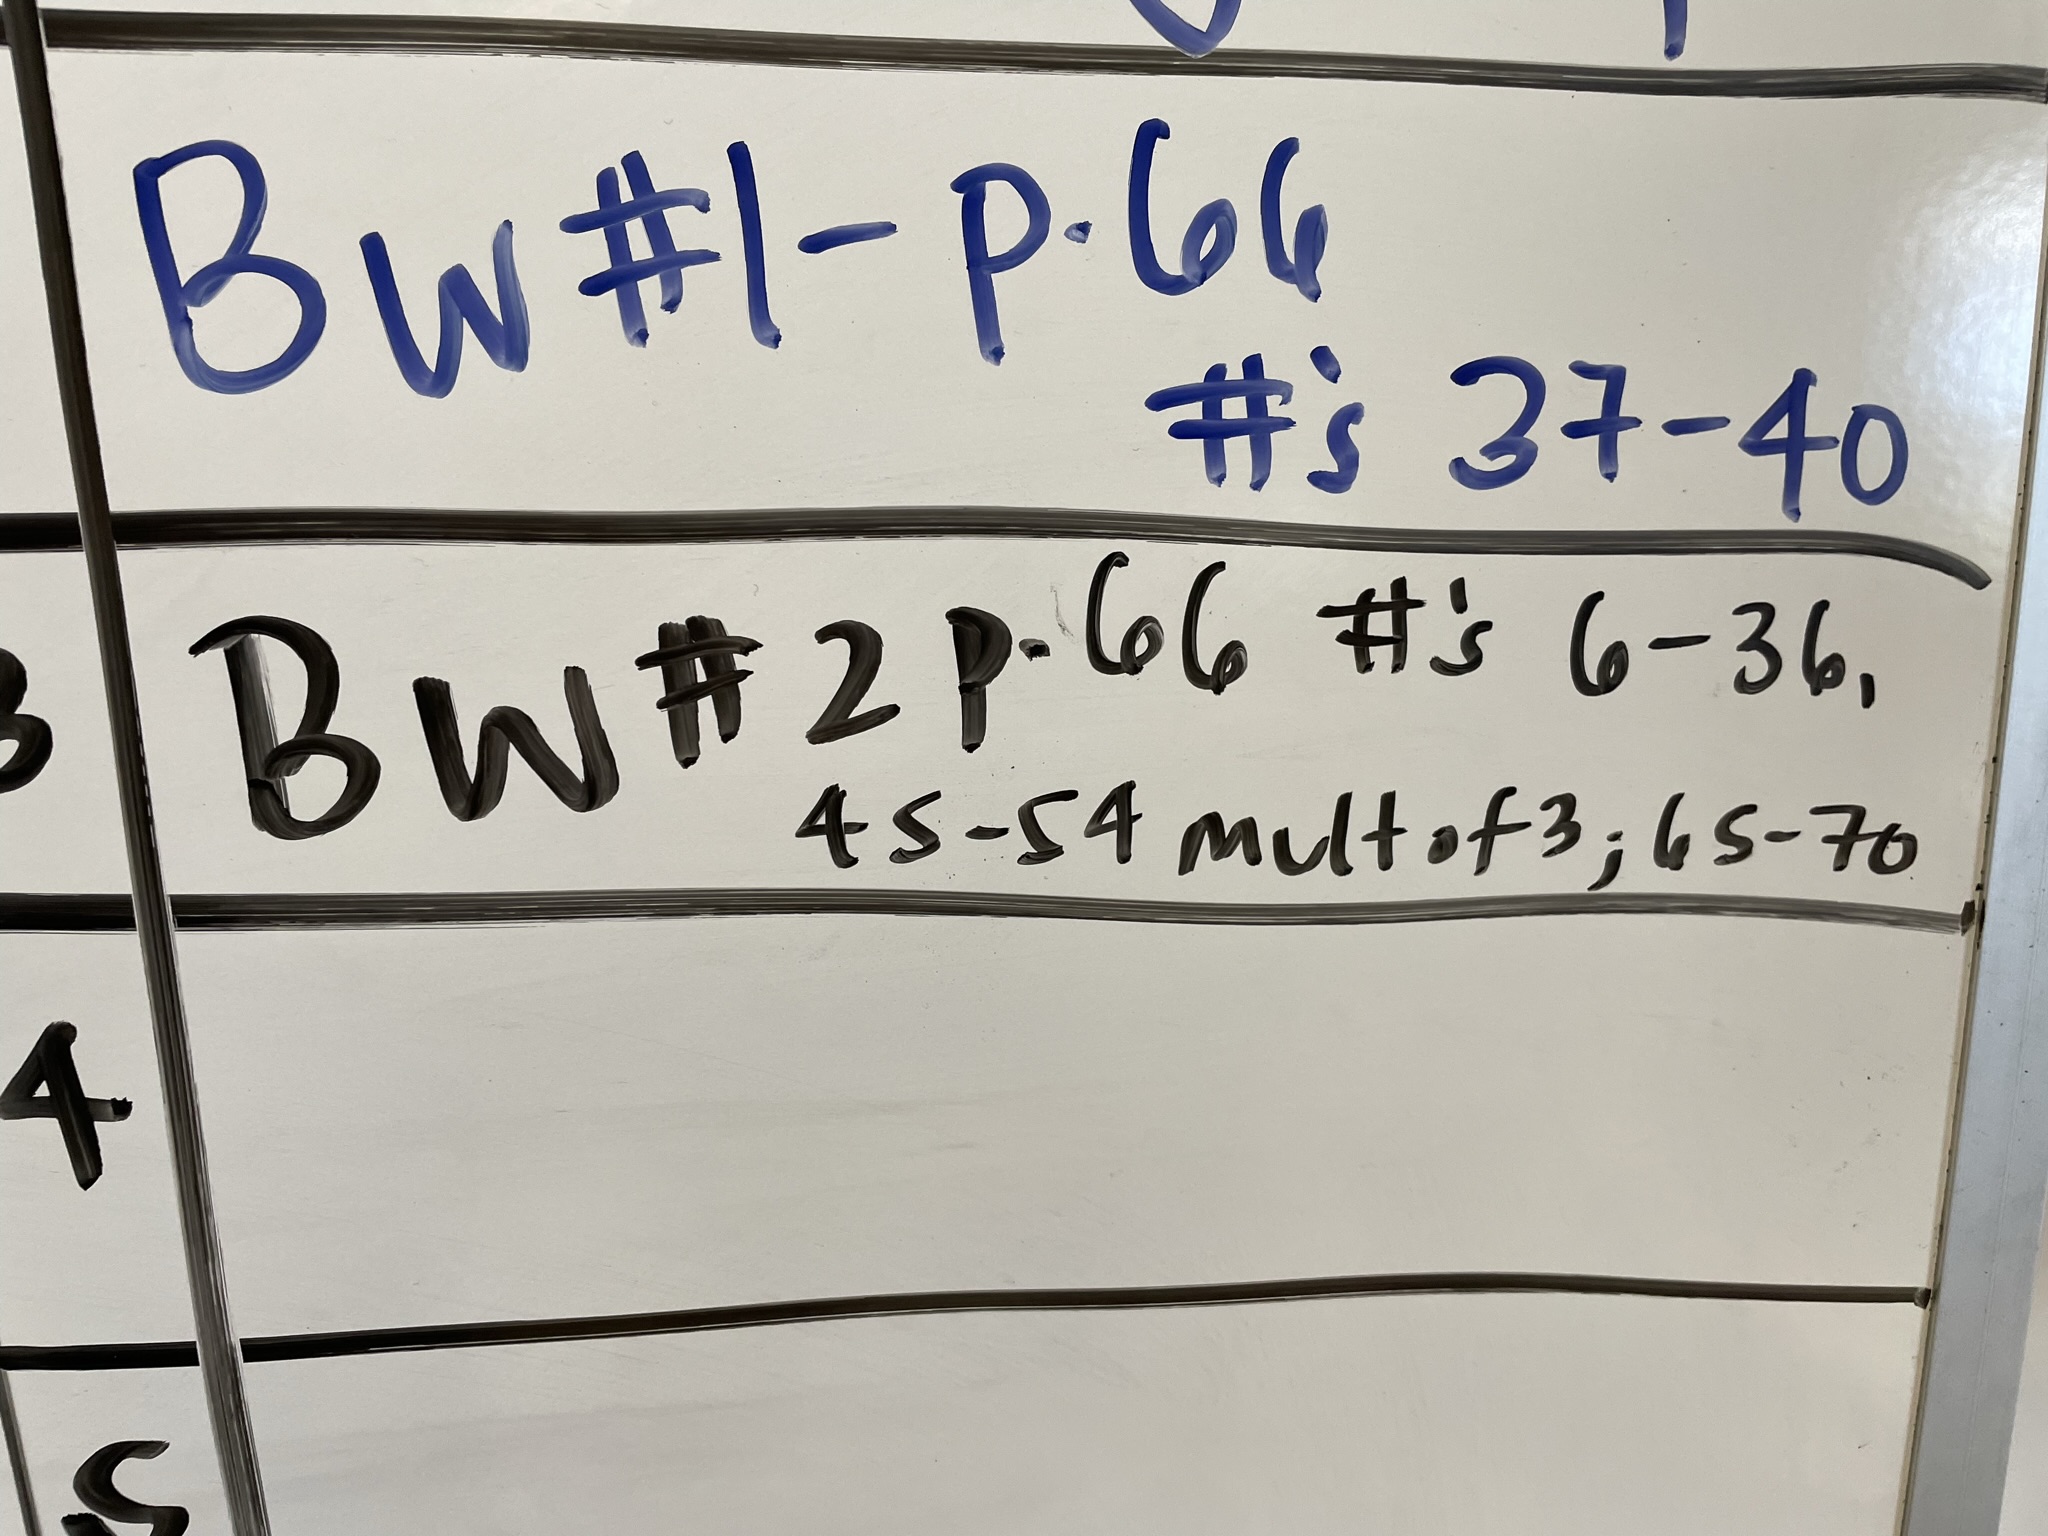 BW #1 - p. 66
#'s 37-40
BW # 2 p. 66 #'s 6-36,
45-54 mult of 3; 65-70
4
5